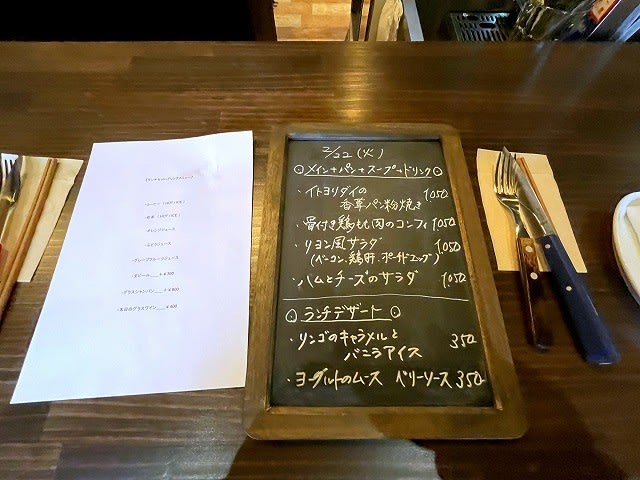 ・コーヒー (HOT/ICE)
・紅茶 (HOT/ICE)
・オレンジジュース
・ぶどうジュース
・グレープフルーツジュース
・生ビール___+¥300
・グラスシャンパン___+¥800
・本日のグラスワイン___¥400
2/22 (火)
⊙メイン+パン+スープ+ドリンク⊙
・イトヨリダイの 1050
香草パン粉焼き
・骨付き鶏もも肉のコンフィ 1050
・リヨン風サラダ 1050
(ベーコン、鶏肝、ポーチドエッグ)
・ハムとチーズのサラダ 1050
⊙ランチデザート⊙
・リンゴのキャラメルと 350
バニラアイス
・ヨーグルトのムース ベリーソース 350